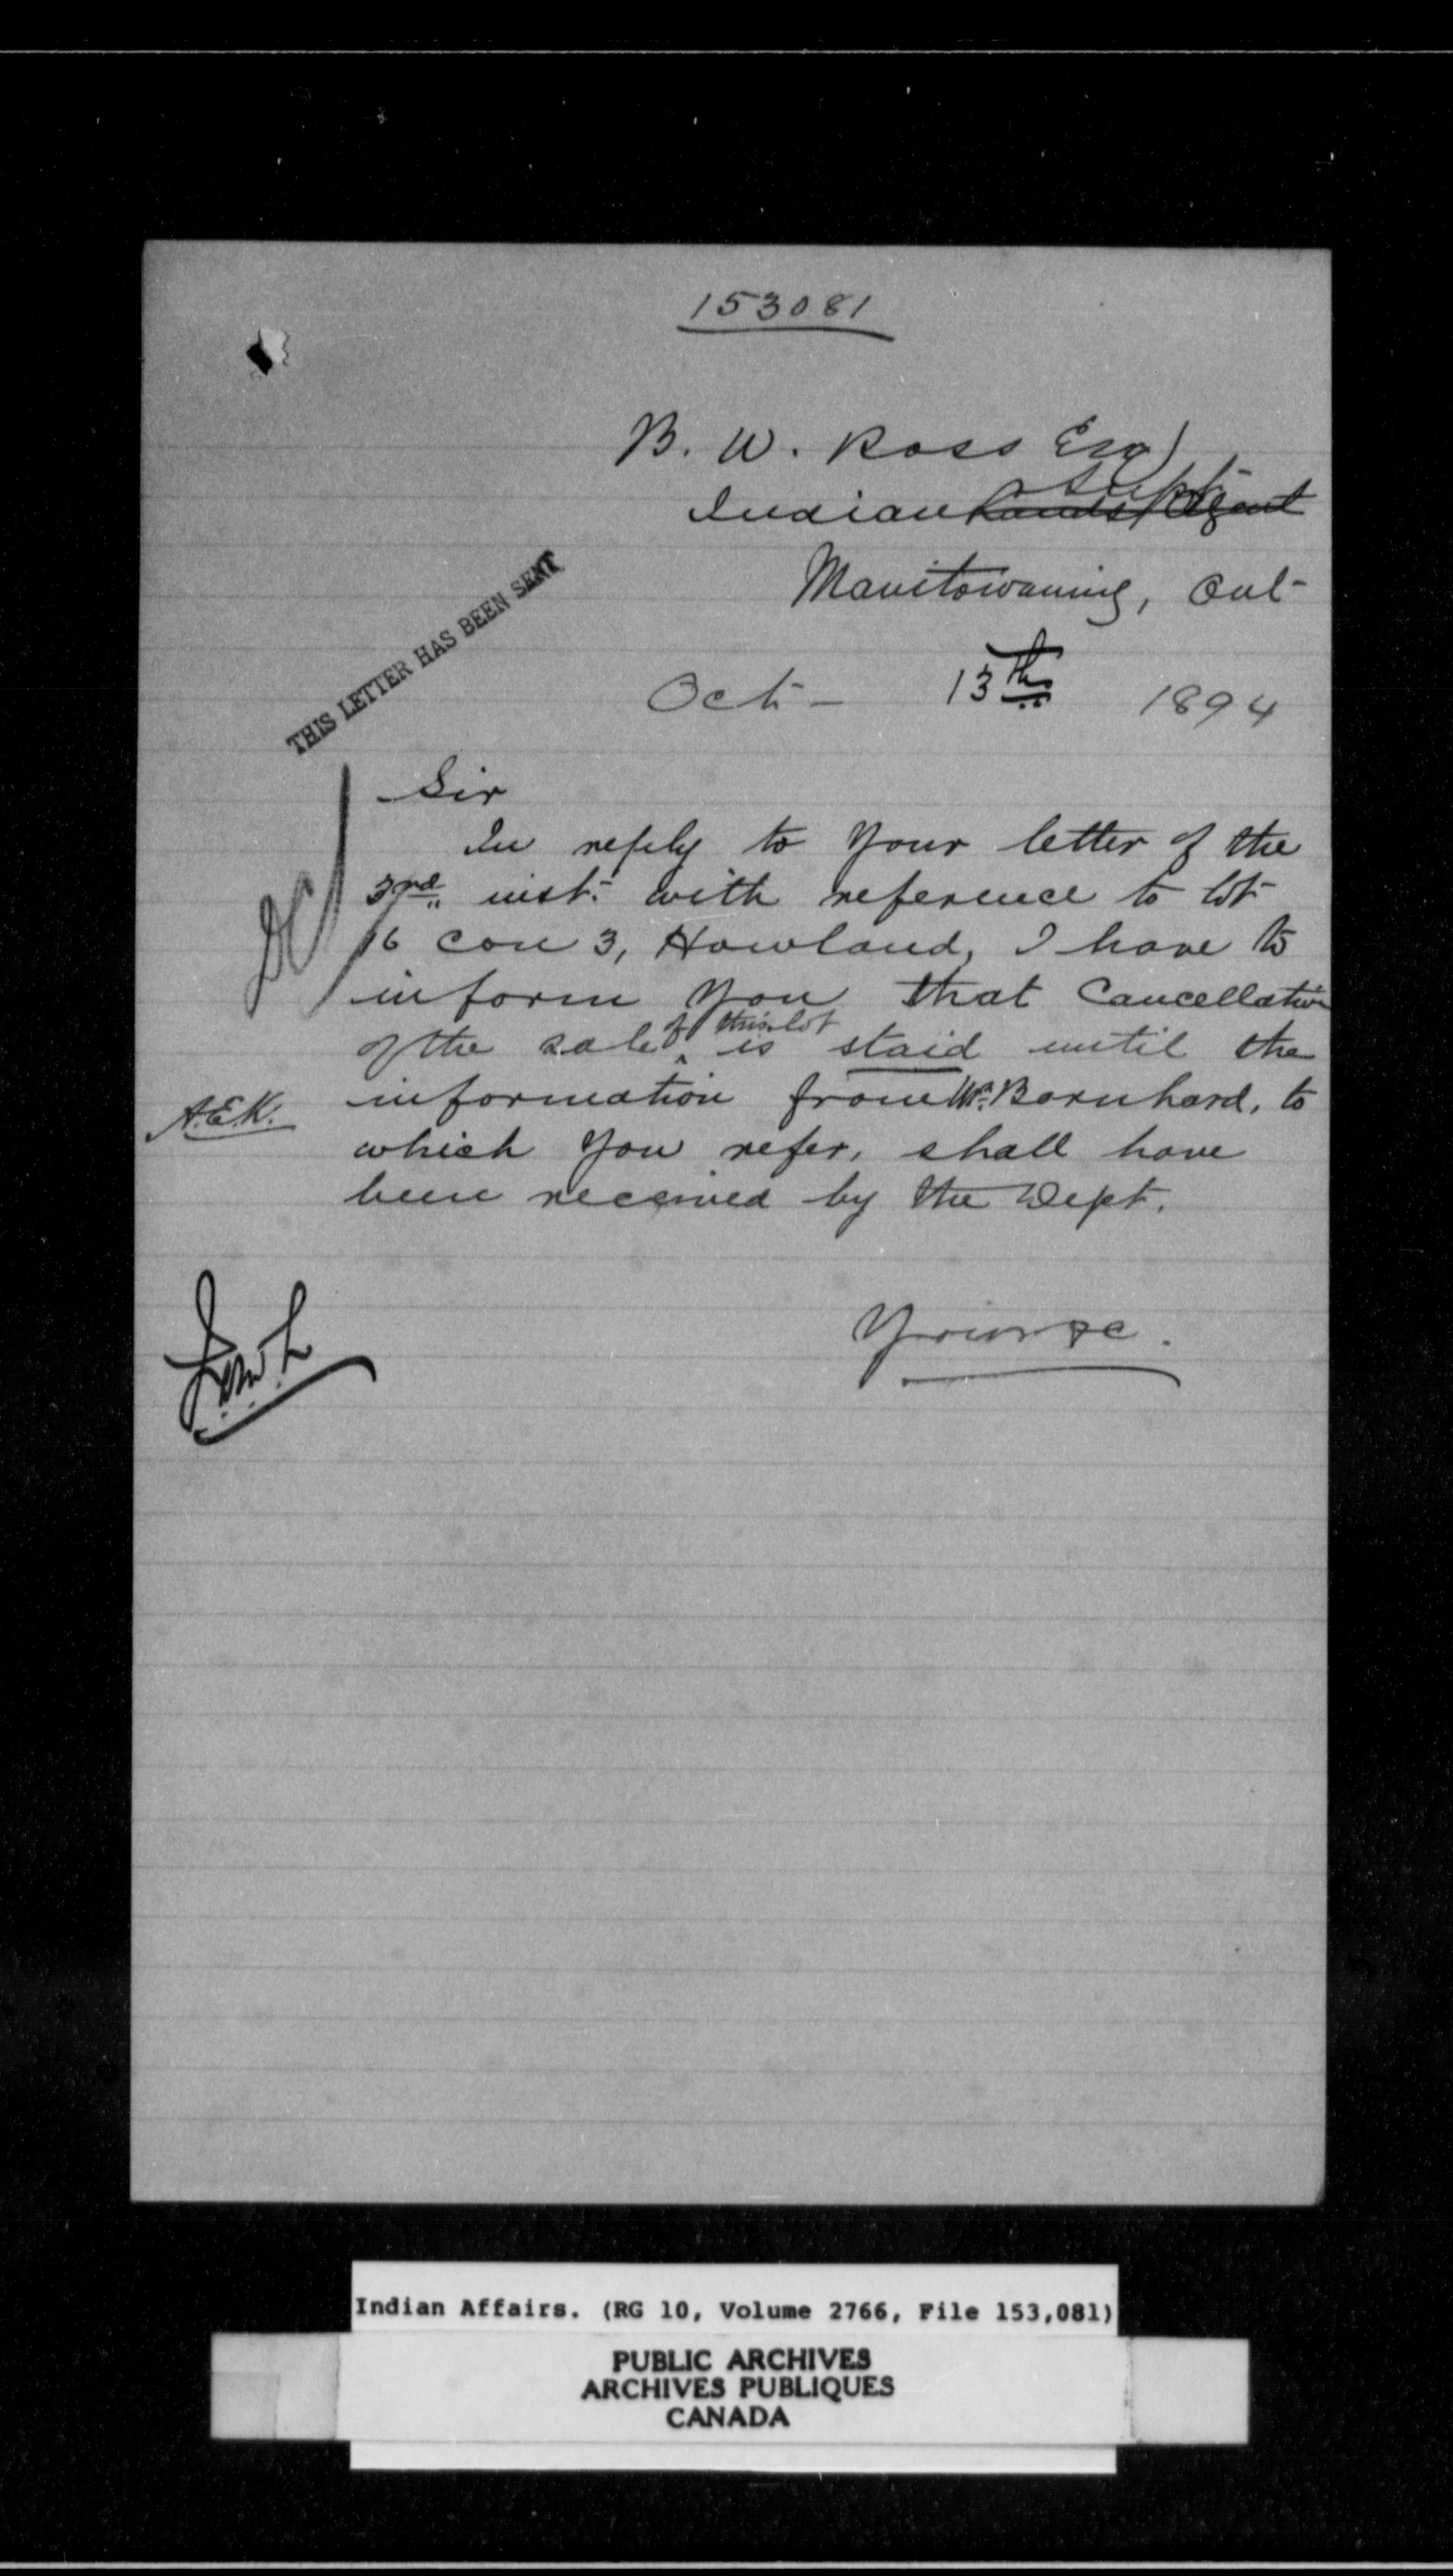 153081
B. W. Ross Esq
Indian Lands Agent
Supt
Manitowaning, Ont-
Oct- 13th 1894
THIS LETTER HAS BEEN SENT
Sir
In reply to your letter of the
3rd inst: with reference to lot
16 con 3, Howland, I have to
inform you that Cancellation
of the sale of this lot is staid until the
information from Mr. Barnhard, to
A.E.K.
which you refer, shall have
been received by the Dept.
Yours &c.
Indian Affairs. (RG 10, Volume 2766, File 153,081)
PUBLIC ARCHIVES
ARCHIVES PUBLIQUES
CANADA